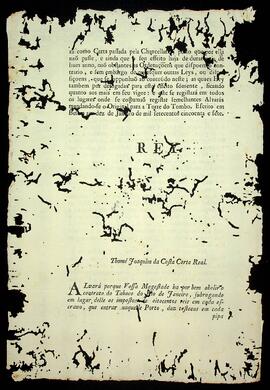 rá como Carta passada pela Chancellaria, posto que por ella
naõ passe, e ainda que o seu effeito haja de durar mais de
hum anno, naõ obstantes as Ordenaçoens que dispoem o con-
trario, e sem embargo de quaesquer outras Leys, ou dis-
posiçoens, que se opponhaõ ao conteudo neste; as quaes Hey
tambem por derogadas para este effeito sómente, ficando
quanto aos mais em seu vigor: e este se registará em todos
os lugares onde se costumaõ registar semelhantes Alvarás
mandando-se o Original para a Torre do Tombo. Escrito em
de de mil setecentos cincoenta e sete.
REY.
Thomé Joaquim da Costa Corte Real.
ALvará porque Vossa Magestade ha por bem abolir o
contrato do Tabaco do Rio de Janeiro, subrogando
em lugar delle os impostos de oitocentos reis em cada es-
cravo, que entrar naquelle Porto, dez tostoens em cada
pipa